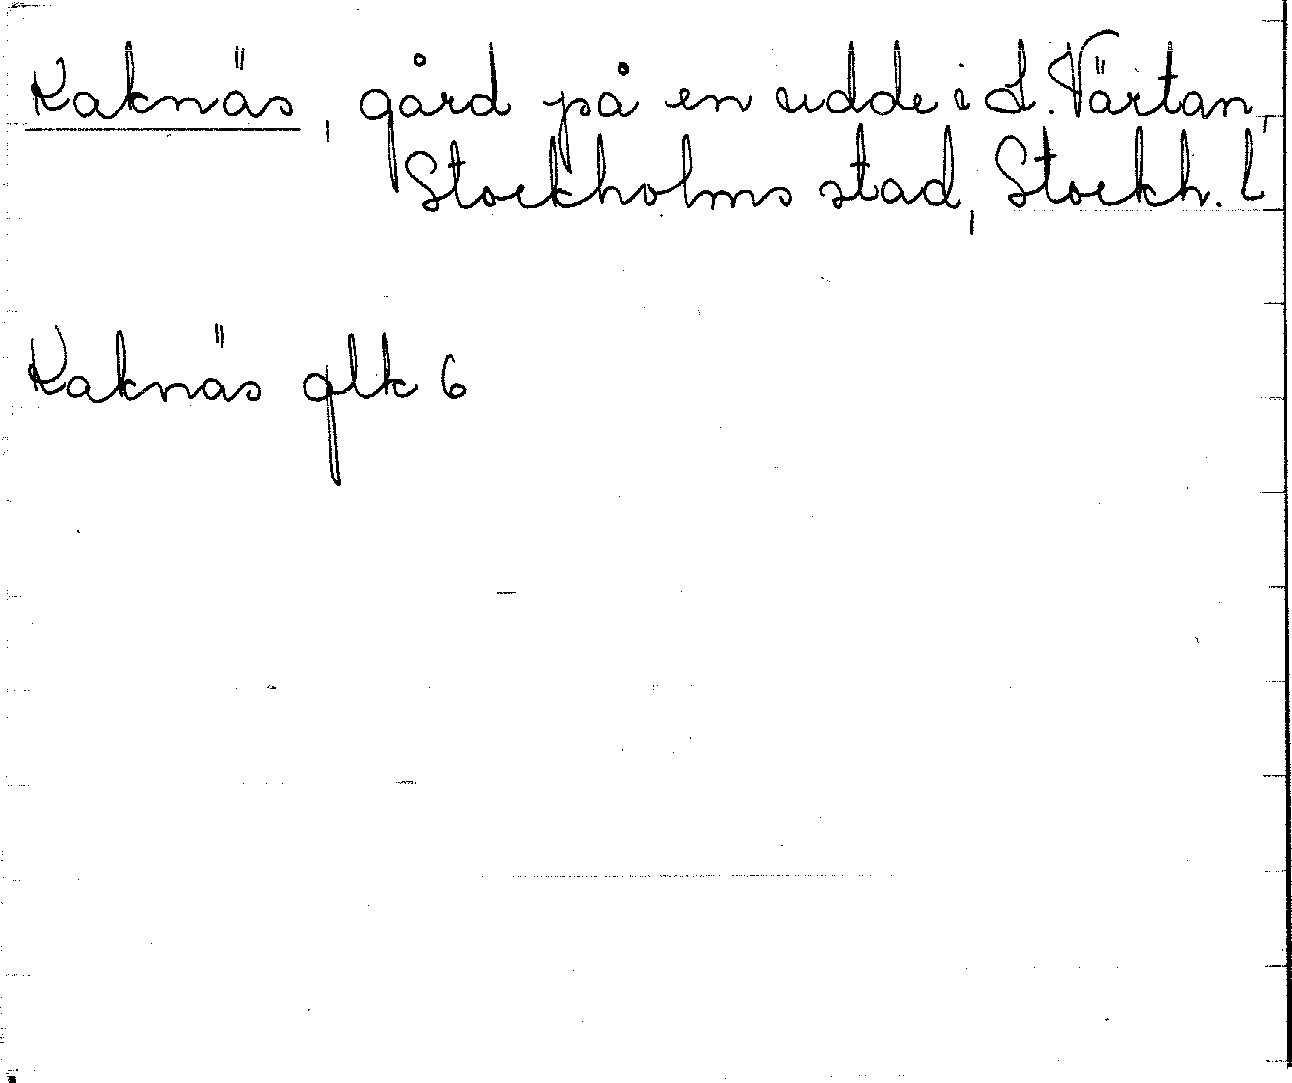 Kaknäs, gård på en udde i L. Värtan,
Stockholms stad, Stockh. l
Kaknäs glk 6